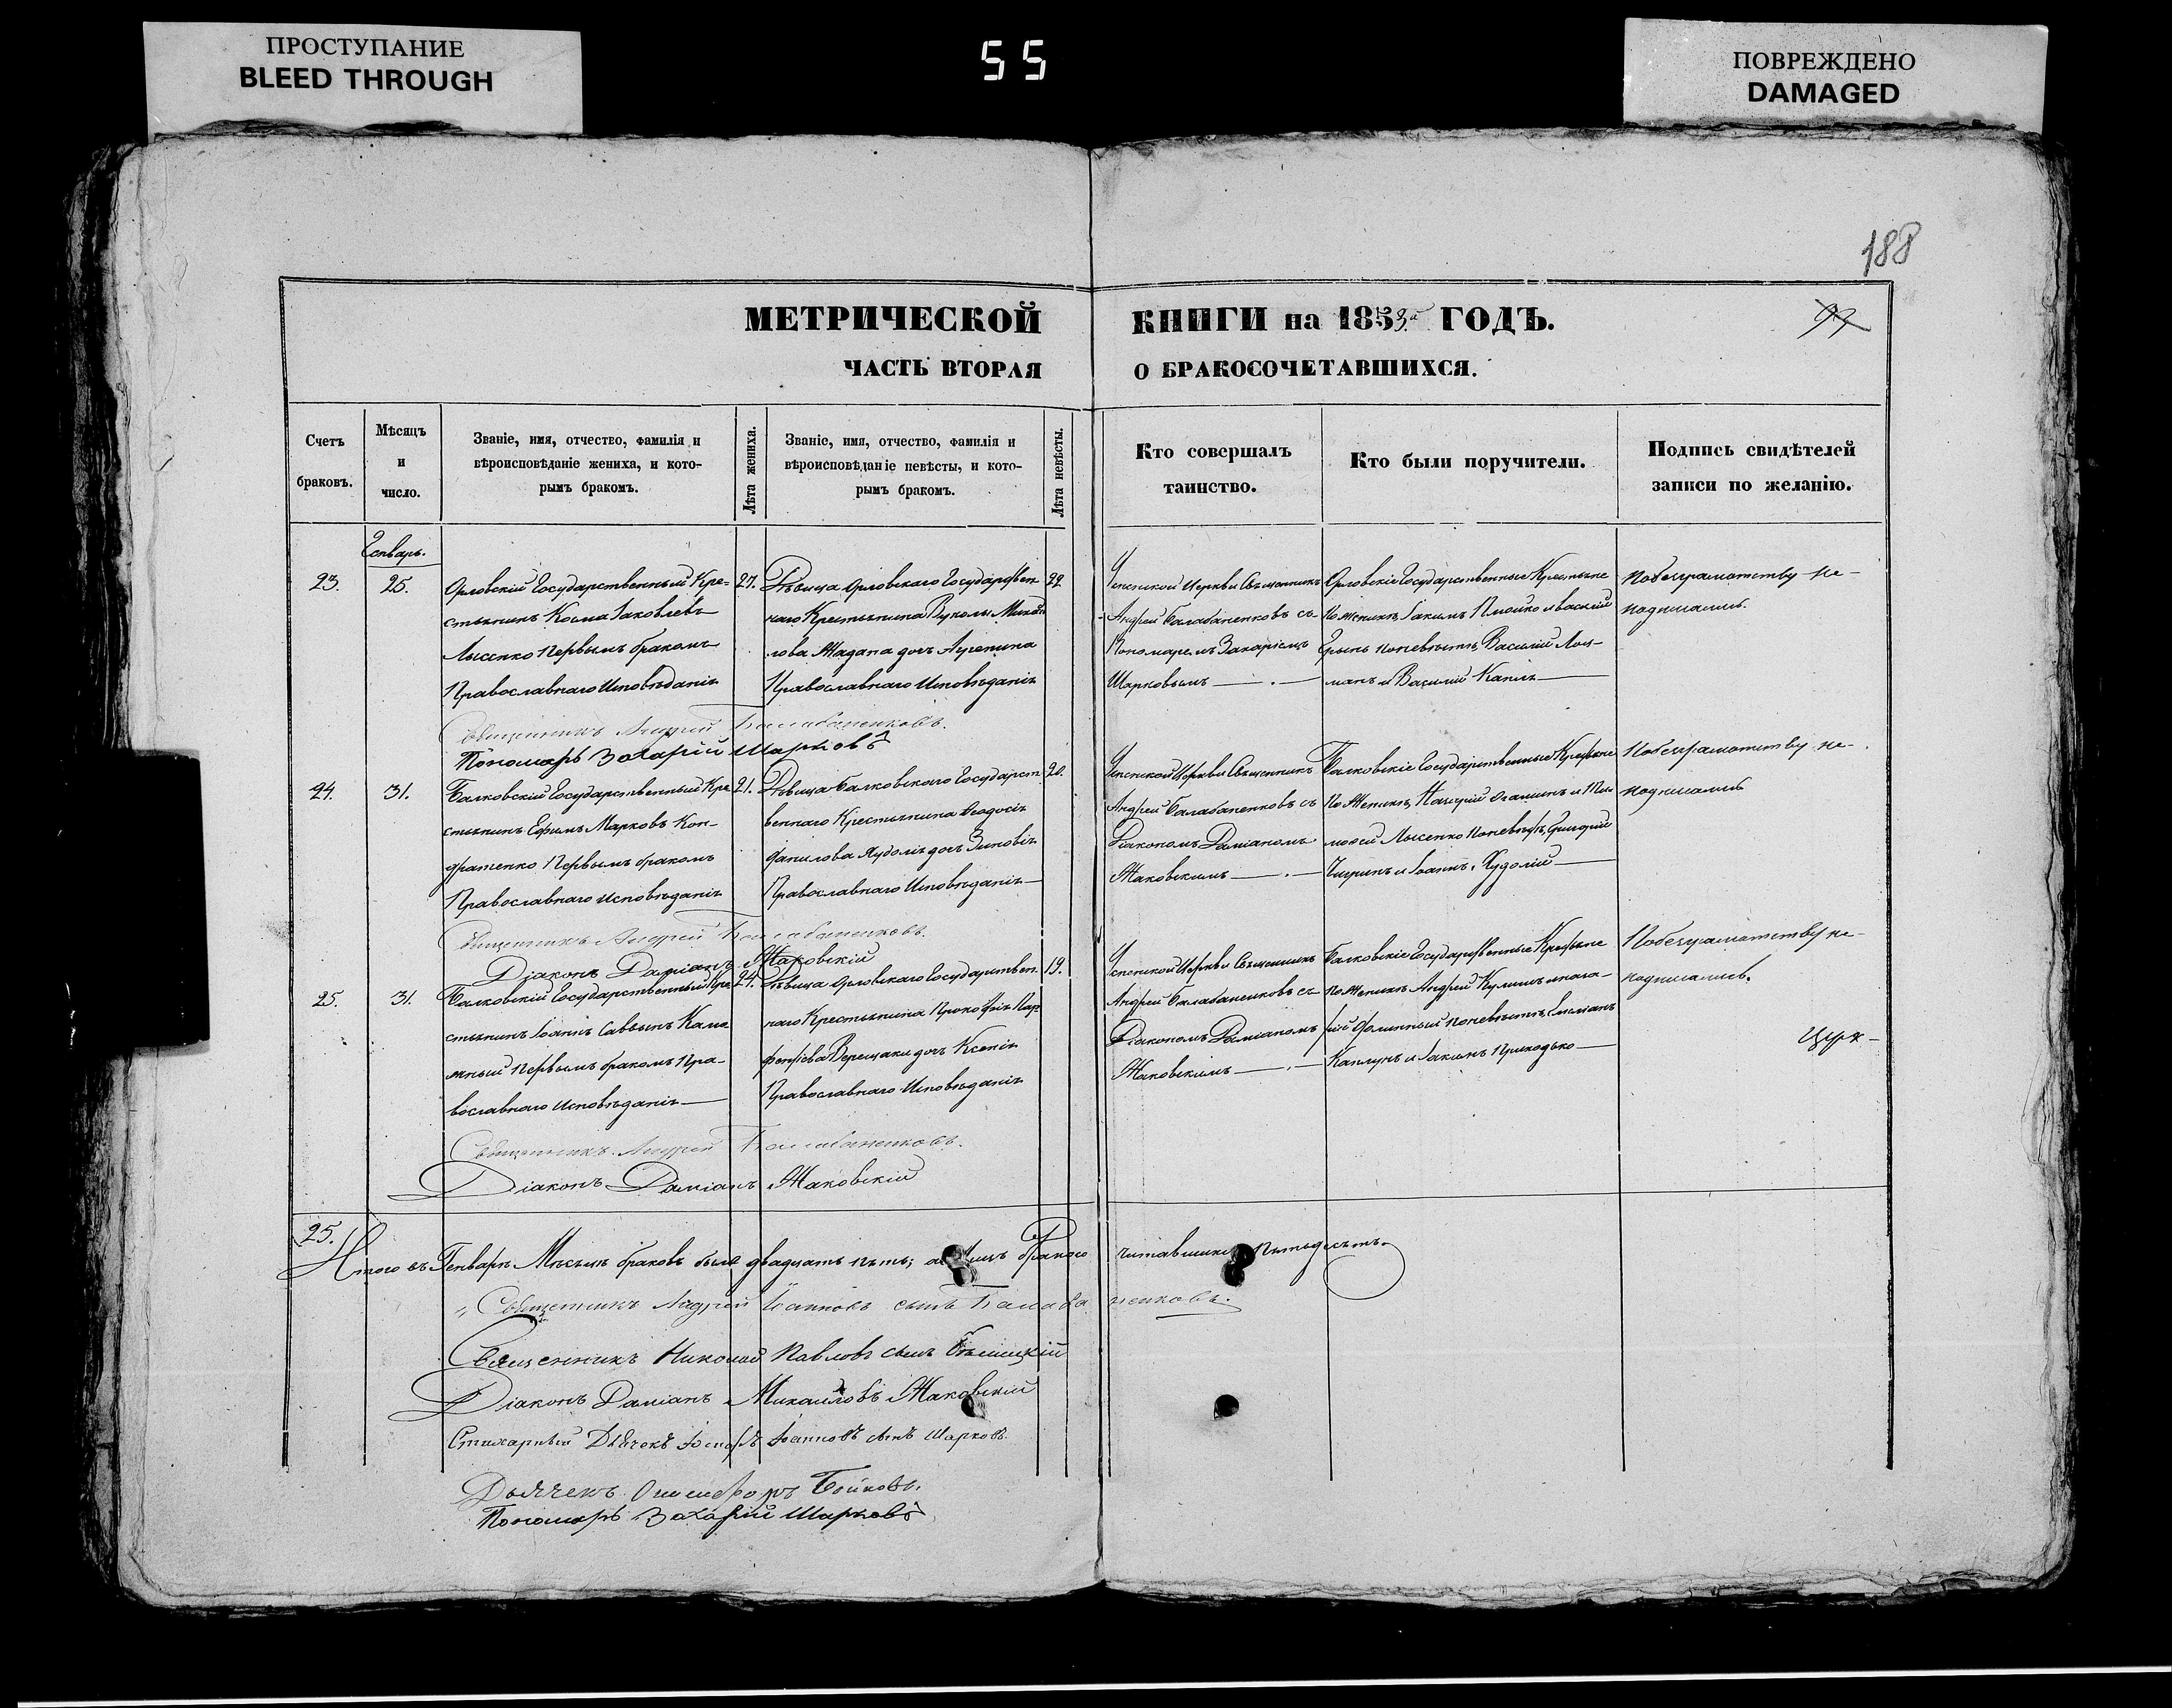 ПРОСТУПАНИЕ
BLEED THROUGH
55
ПОВРЕЖДЕНО
DAMAGED
188
МЕТРИЧЕСКОЙ КНИГИ на 1853 ГОДЪ.
99
ЧАСТЬ ВТОРАЯ О БРАКОСОЧЕТАВШИХСЯ.
Счетъ
браковъ.
Мѣсяцъ
и
число.
Званіе, имя, отчество, фамилія и
вѣроисповѣданіе жениха, и кото-
рымъ бракомъ.
Лѣта жениха.
Званіе, имя, отчество, фамилія и
вѣроисповѣданіе невѣсты, и кото-
рымъ бракомъ.
Лѣта невѣсты.
Кто совершалъ
таинство.
Кто были поручители.
Подпись свидѣтелей
записи по желанію.
Генварь.
23.
25.
Орловскій Государственный Кре-
стьянинъ Косма Іаковлевъ
Лысенко первымъ бракомъ
Православнаго Исповѣданія
27.
Дѣвица Орловскаго Государствен
наго Крестьянина Вуколы Михай
лова Жадана дочь Агрепина
Православнаго Исповѣданія
22
Успенской Церкви Священникъ
Андрей Балабаненковъ съ
Пономаремъ Захаріемъ
Шарковымъ
Орловскіе Государственные Крестьяне
По женихѣ, Іакимъ
по невѣстѣ, Василій Лоц-
манъ и Василій
По безграмотству не-
подписались.
Священникъ Андрей Балабаненковъ.
Пономарь Захарій Шарковъ
24.
31.
Балковскій Государственный Кре
стьянинъ Ефимъ Марковъ Кон-
дратенко Первымъ бракомъ
Православнаго Исповѣданія
21.
Дѣвица Балковскаго Государст
веннаго Крестьянина Ѳеодосія
Данилова Худолія дочь Зиновія
Православнаго Исповѣданія
20.
Успенской Церкви Священникъ
Андрей Балабаненковъ съ
Діакономъ Даміаномъ
Жаковскимъ
Балковскіе Государственные Крестьяне
По Женихѣ,
Лысенко по невѣстѣ, Григорій
и Іоаннъ Худолій
По безграмотству не-
подписались
Священникъ Андрей Балабаненковъ.
Діаконъ Даміанъ Жаковскій
25.
31.
Балковскій Государственный Кре
стьянинъ Іоаннъ Саввинъ Кала
шный первымъ бракомъ Пра-
вославнаго Исповѣданія
24.
Дѣвица Орловскаго Государствен.
наго Крестьянина Прокофія Пар-
фентіева Верещаки дочь Ксенія
Православнаго Исповѣданія
19.
Успенской Церкви Священникъ
Андрей Балабаненковъ съ
Діакономъ Даміаномъ
Жаковскимъ
Балковскіе Государственные Крестьяне
По Женихѣ Андрей Кулишъ
по невѣстѣ,
Каплунъ и Іакимъ Приходько
По безграмотству не-
подписались.
Священникъ Андрей Балабаненковъ.
Діаконъ Даміанъ Жаковскій
25.
Итого въ Генварѣ Мѣсяцѣ браковъ было двадцать пять; а лицъ бракосо читавшихся Пятьдесятъ.
Священникъ Андрей Іоанновъ сынъ Балаба ненковъ.
Священникъ Николай Павловъ сынъ
Діаконъ Даміанъ Михаиловъ Жаковскій
Стихарный Дьячекъ Іосифъ Іоанновъ сынъ Шарковъ.
Дьячекъ Бойковъ.
Пономарь Захарій Шарковъ